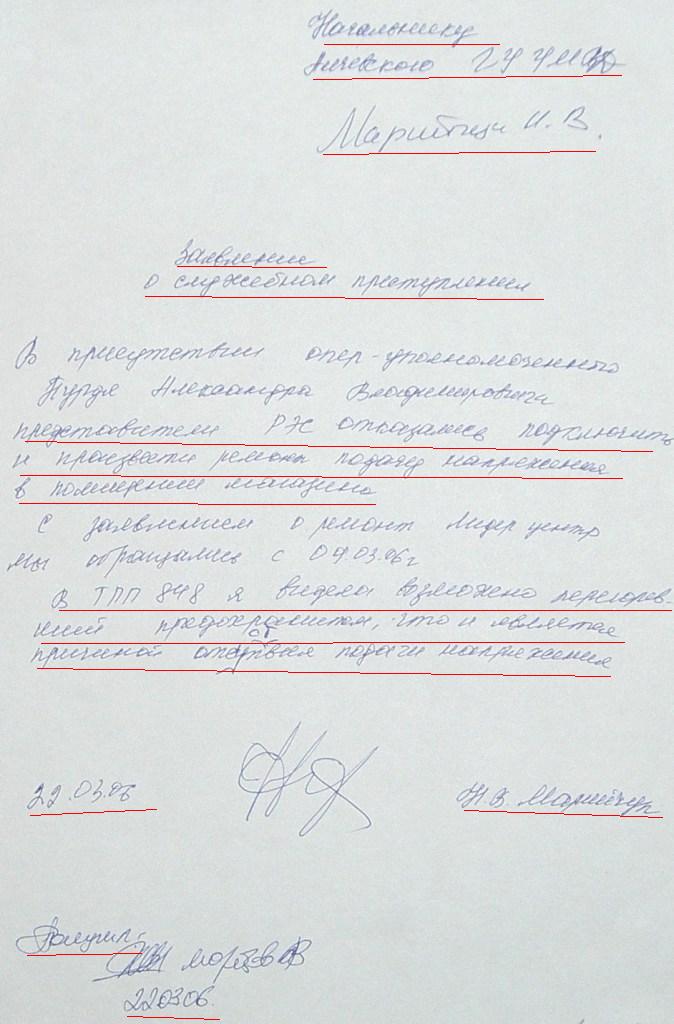 Начальнику
Ничевского
Марийчук Н. В.
Заявление
о служебном преступлении
В присутствии опер-уполномоченного
Александра Владимировича
представители РЭС отказались подключить
и произвести ремонт подачу напряжения
в помещении магазина
С заявлением о ремонт Лидер центр
мы обращались с 09.03.06г
В ТПП 848 я видела возможено перегорев-
ший предохранитель, что и является
причиной подачи напряжения
22.03.06
Н.В. Марийчук
Получил:
220306.